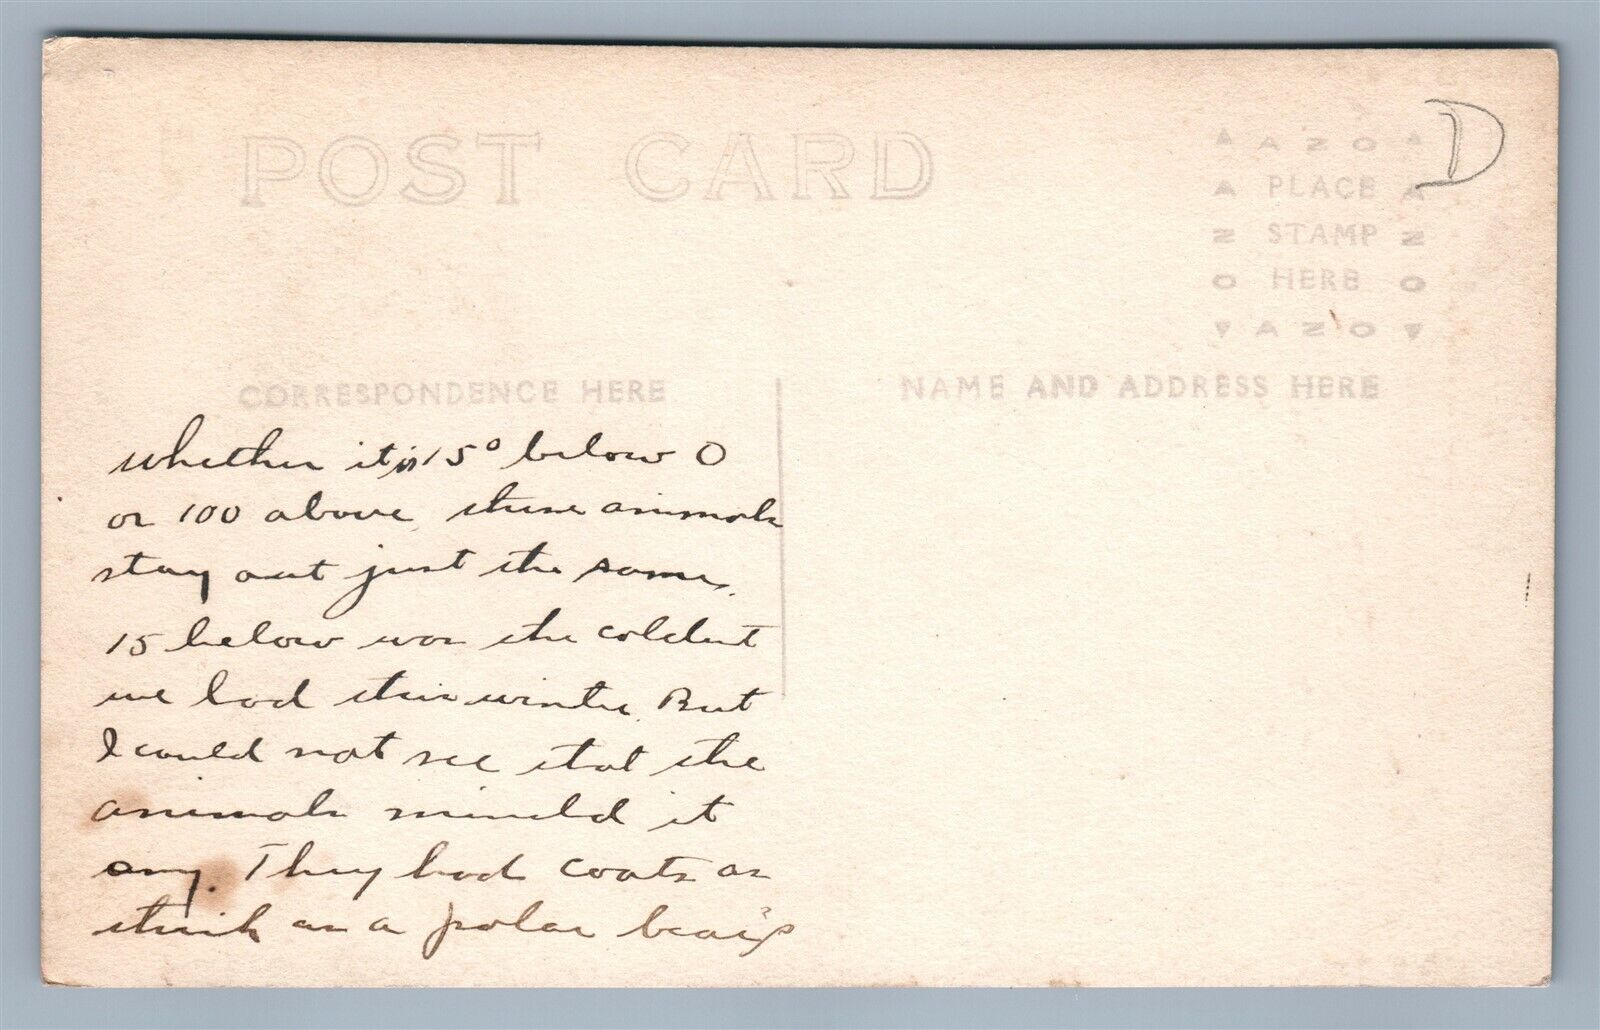 POST CARD
D
AZO
PLACE
STAMP
HERE
AZO
CORRESPONDENCE HERE
NAME AND ADDRESS HERE
whether it is 15° below 0
or 100 above, these animals
stay out just the same.
15 below was the coldest
we had this winter. But
I could not see that the
animals minded it
any. They had coats as
thick as a polar bear's